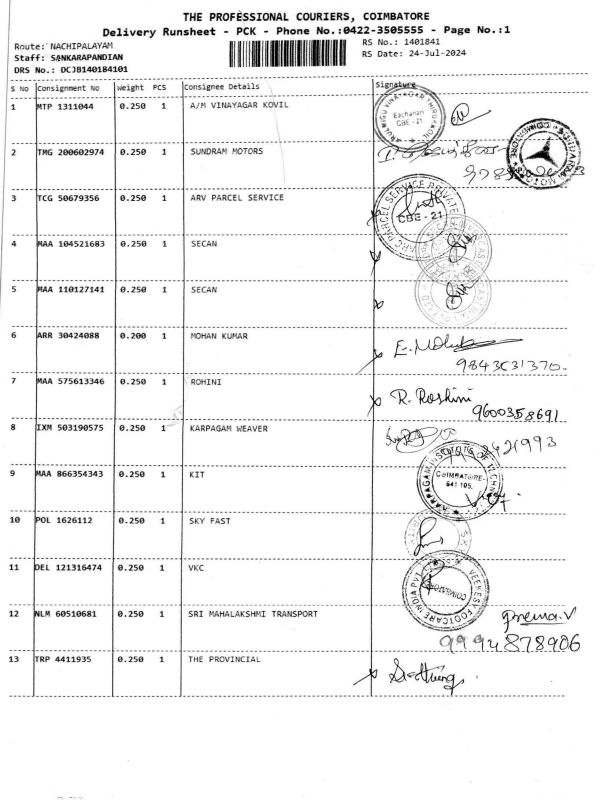 THE PROFESSIONAL COURIERS, COIMBATORE
Delivery Runsheet - PCK - Phone No.:0422-3505555 - Page No.:1
Route: NACHIPALAYAM
RS No.: 1401841
Staff: SANKARAPANDIAN
RS Date: 24-Jul-2024
DRS No.: DCJB140184101
S No Consignment No Weight PCS Consignee Details Signature
1 MTP 1311044 0.250 1 A/M VINAYAGAR KOVIL
Eachanari
CBE - 21
2 TMG 200602974 0.250 1 SUNDRAM MOTORS
3 TCG 50679356 0.250 1 ARV PARCEL SERVICE
CBE - 21
4 MAA 104521683 0.250 1 SECAN
5 MAA 110127141 0.250 1 SECAN
6 ARR 30424088 0.200 1 MOHAN KUMAR
9843631370.
7 MAA 575613346 0.250 1 ROHINI
R. Roshini
9600358691
8 IXM 503190575 0.250 1 KARPAGAM WEAVER
9 MAA 866354343 0.250 1 KIT
COIMBATORE-
641 105.
10 POL 1626112 0.250 1 SKY FAST
11 DEL 121316474 0.250 1 VKC
VEEKESY FOOTCARE INDIA PVT
COIMBATORE
12 NLM 60510681 0.250 1 SRI MAHALAKSHMI TRANSPORT
Prema.V
9994878906
13 TRP 4411935 0.250 1 THE PROVINCIAL